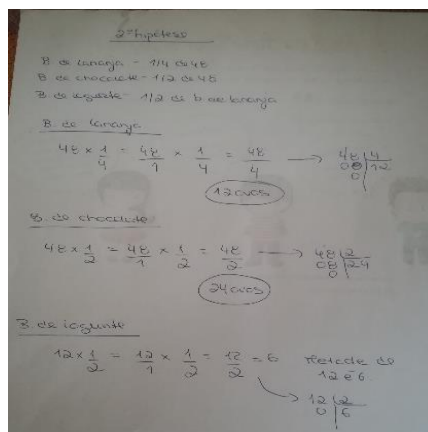 2ª hipótese
B de laranja - 1/4 de 48
B de chocolate - 1/2 de 48
B de iogurte - 1/2 di b de laranja
B. de laranja
48 x 1/4 = 48/1 x 1/4 = 48/4 → 48 | 4
08 | 12
0
12 ovos
B. de chocolate
48 x 1/2 = 48/1 x 1/2 = 48/2 → 48 | 2
08 | 24
0
24 ovos
B. de iogurte
12 x 1/2 = 12/1 x 1/2 = 12/2 = 6 Metade de
12 é 6.
→ 12 | 2
0 | 6